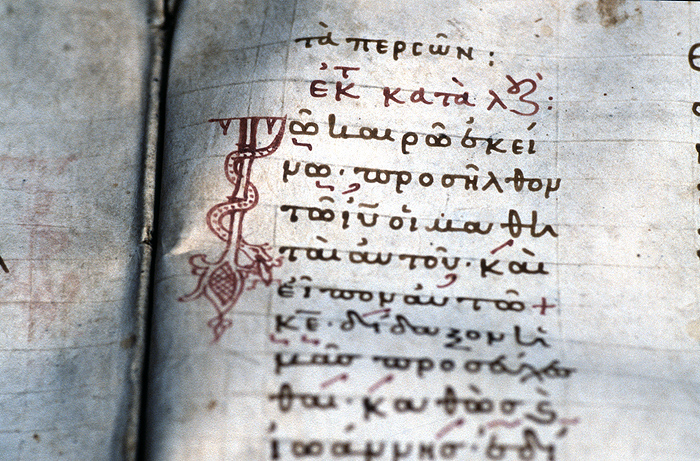 τὰ περσῶν :
ἐκ τ κατὰ λξ :
Τῶ καιρῶ ἐκεί
νω· προσῆλθον
τῶ ἰῦ οἱ μαθη
ταὶ αὐτοῦ· καὶ
εἶπον αὐτῶ +
κε· δίδαξον ἡ
μᾶσ προσεύχε
σθαι· καθὼσ ϗ
ἰωάννησ· ἐδί